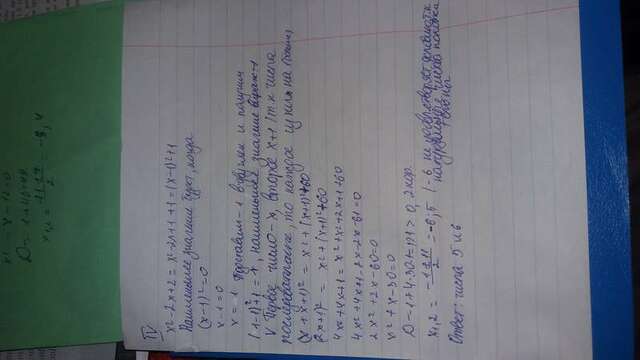 x² - x - 12 = 0
D = 1 + 48 = 49
x₁,₂ = = -3, 4
IV
x² - 2x + 2 = x² - 2x + 1 + 1 = (x-1)² + 1
Наименьшее значение будет, когда
(x-1)² = 0
x - 1 = 0
x = 1 Подставим 1 в и получим
(1-1)² + 1 = 1, наименьшее значение выраж - 1
V Первое число - x, второе x+1 /т.к числа
последовательные, то каждое на
(x + x+1)² = x² + (x+1)² + 60
(2x+1)² = x² + (x+1)² + 60
4x² + 4x + 1 = x² + x² + 2x + 1 + 60
4x² + 4x + 1 - 2x² - 2x - 61 = 0
2x² + 2x - 60 = 0
x² + x - 30 = 0
D = 1 + 4·30·1 = 121 > 0, 2 кор.
x₁,₂ = (-1±11)/2 = -6; 5 / -6 не удовлетворяет т.к
натуральные числа
Ответ: числа 5 и 6